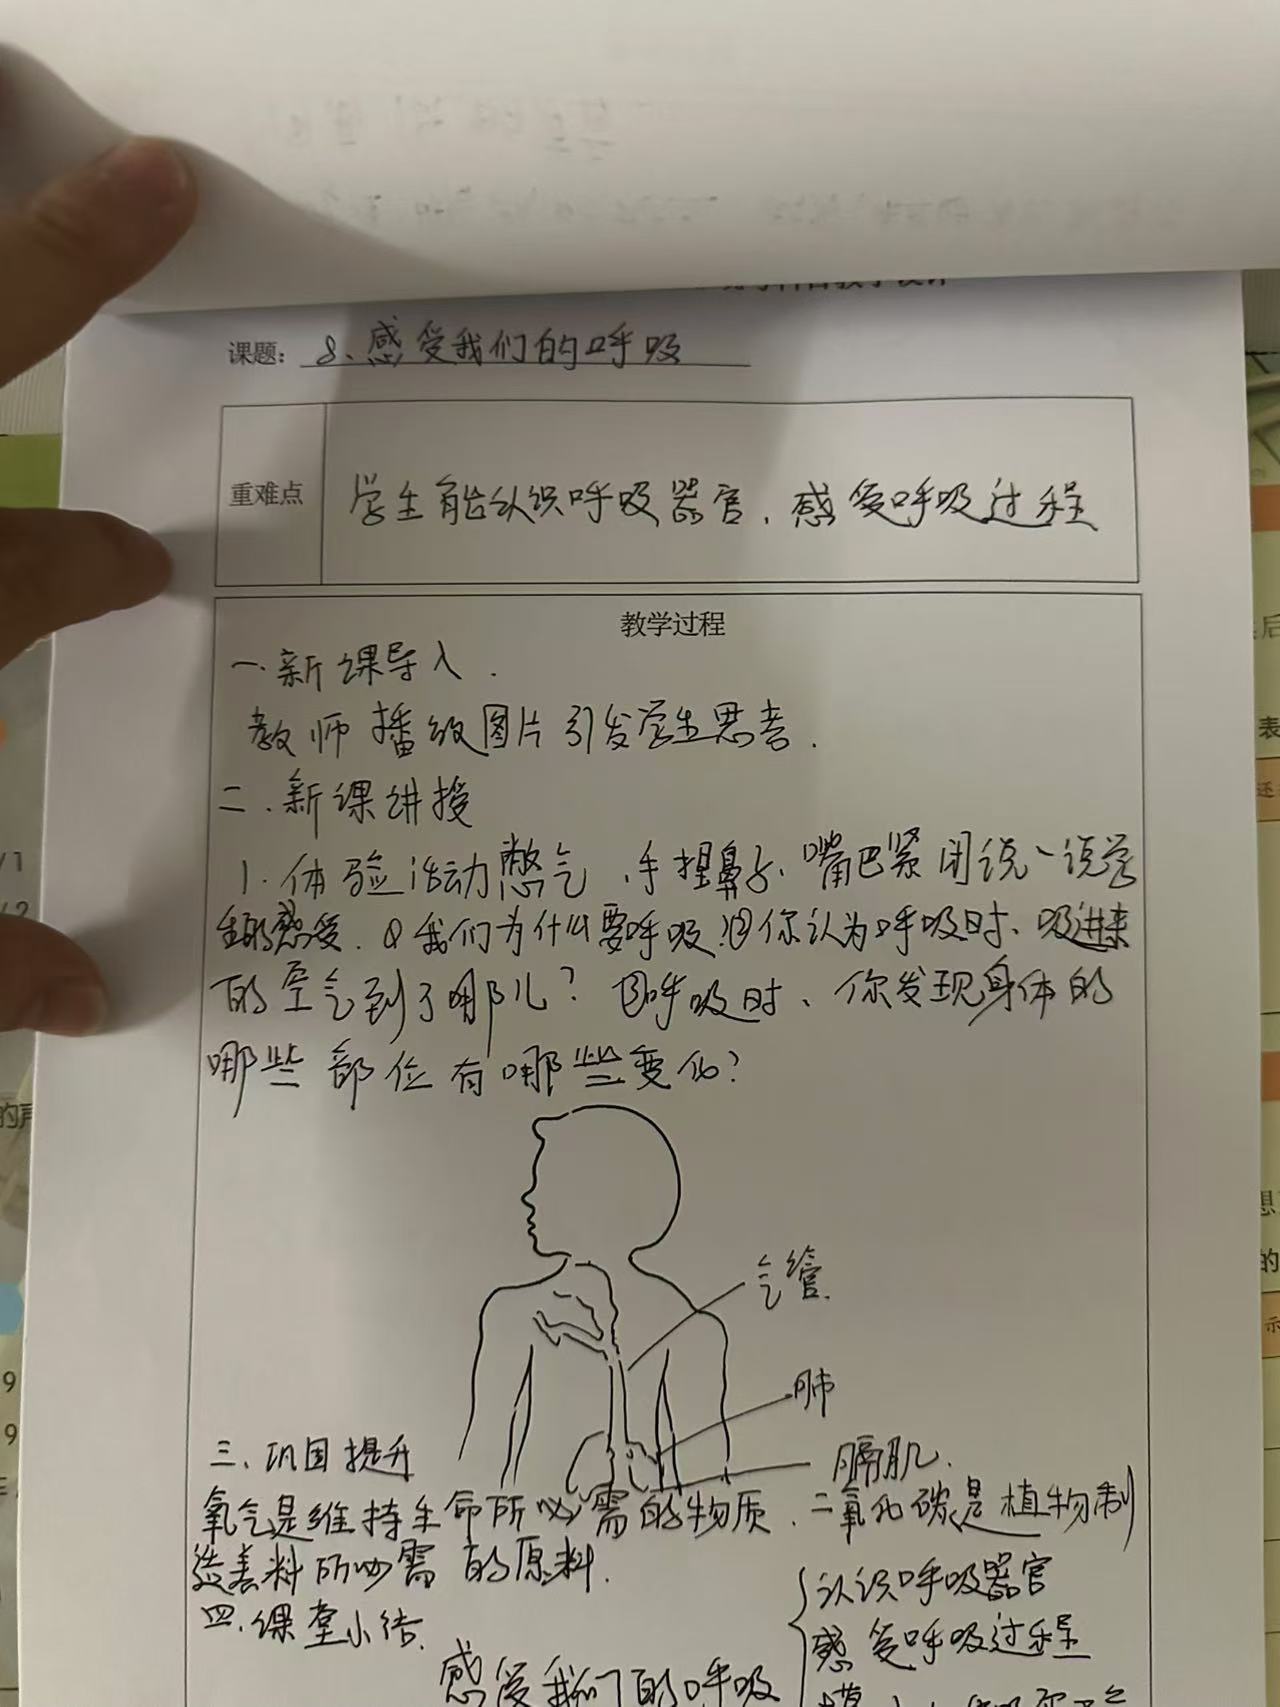 课题： 8、感受我们的呼吸
重难点
学生能认识呼吸器官、感受呼吸过程
教学过程
一.新课导入.
教师播放图片引发学生思考.
二.新课讲授
1.体验活动憋气、手捏鼻子、嘴巴紧闭说一说学
生的感受.①我们为什么要呼吸?②你认为呼吸时、吸进来
的空气到了哪儿?③呼吸时、你发现身体的
哪些部位有哪些变化?
气管.
肺
膈肌.
三、巩固提升
氧气是维持生命所必需的物质.二氧化碳是植物制
造养料所必需的原料.
四.课堂小结.
感受我们的呼吸
认识呼吸器官
感受呼吸过程